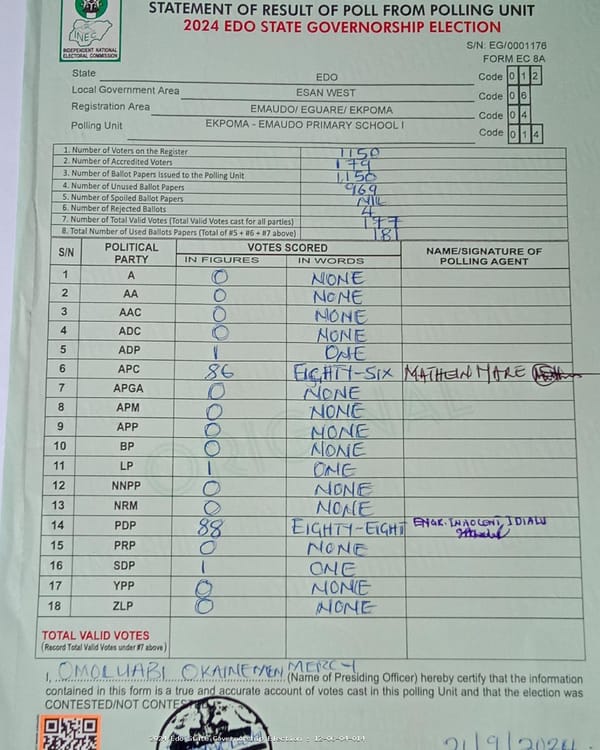 INEC
INDEPENDENT NATIONAL
ELECTORAL COMMISSION
STATEMENT OF RESULT OF POLL FROM POLLING UNIT
2024 EDO STATE GOVERNORSHIP ELECTION
S/N: EG/0001176
FORM EC 8A
State EDO Code 0 1 2
Local Government Area ESAN WEST Code 0 6
Registration Area EMAUDO/ EGUARE/ EKPOMA Code 0 4
Polling Unit EKPOMA - EMAUDO PRIMARY SCHOOL I Code 0 1 4
1. Number of Voters on the Register 1150
2. Number of Accredited Voters 179
3. Number of Ballot Papers Issued to the Polling Unit 1,150
4. Number of Unused Ballot Papers 969
5. Number of Spoiled Ballot Papers NIL
6. Number of Rejected Ballots 4
7. Number of Total Valid Votes (Total Valid Votes cast for all parties) 177
8. Total Number of Used Ballots Papers (Total of #5 + #6 + #7 above) 181
S/N POLITICAL PARTY VOTES SCORED NAME/SIGNATURE OF POLLING AGENT
IN FIGURES IN WORDS
1 A 0 NONE
2 AA 0 NONE
3 AAC 0 NONE
4 ADC 0 NONE
5 ADP 1 ONE
6 APC 86 EIGHTY-SIX
7 APGA 0 NONE
8 APM 0 NONE
9 APP 0 NONE
10 BP 0 NONE
11 LP 1 ONE
12 NNPP 0 NONE
13 NRM 0 NONE
14 PDP 88 EIGHTY-EIGHT ENGR. INNOCENT IDIALU
15 PRP 0 NONE
16 SDP 1 ONE
17 YPP 0 NONE
18 ZLP 0 NONE
ORIGINAL
TOTAL VALID VOTES
(Record Total Valid Votes under #7 above)
I, OMOLUABI OKAINEMEN MERCY (Name of Presiding Officer) hereby certify that the information
contained in this form is a true and accurate account of votes cast in this polling Unit and that the election was
CONTESTED/NOT CONTES
2024 Edo State Governorship Election - 12-06-04-014
21/9/2024